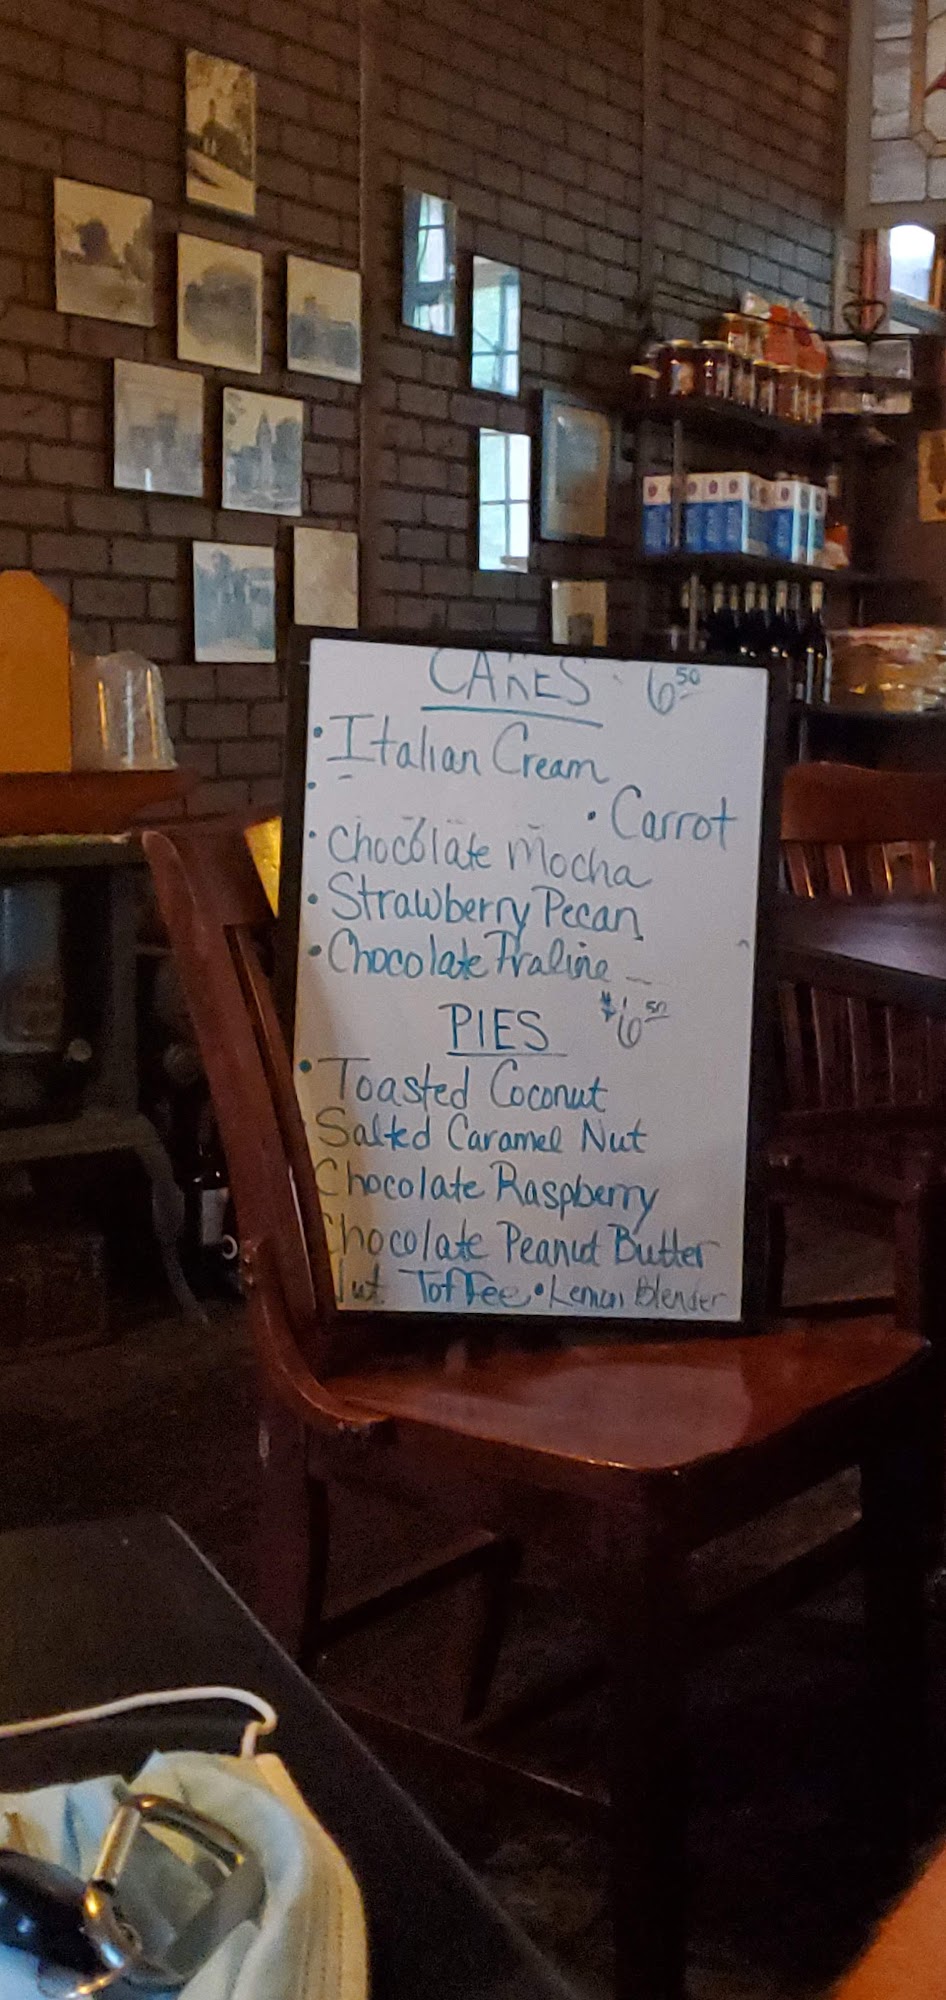 CAKES 6.50
• Italian Cream
•
• Carrot
• Chocolate Mocha
• Strawberry Pecan
• Chocolate Praline
PIES $6.50
• Toasted Coconut
Salted Caramel Nut
Chocolate Raspberry
Chocolate Peanut Butter
Nut Toffee • Lemon Blender